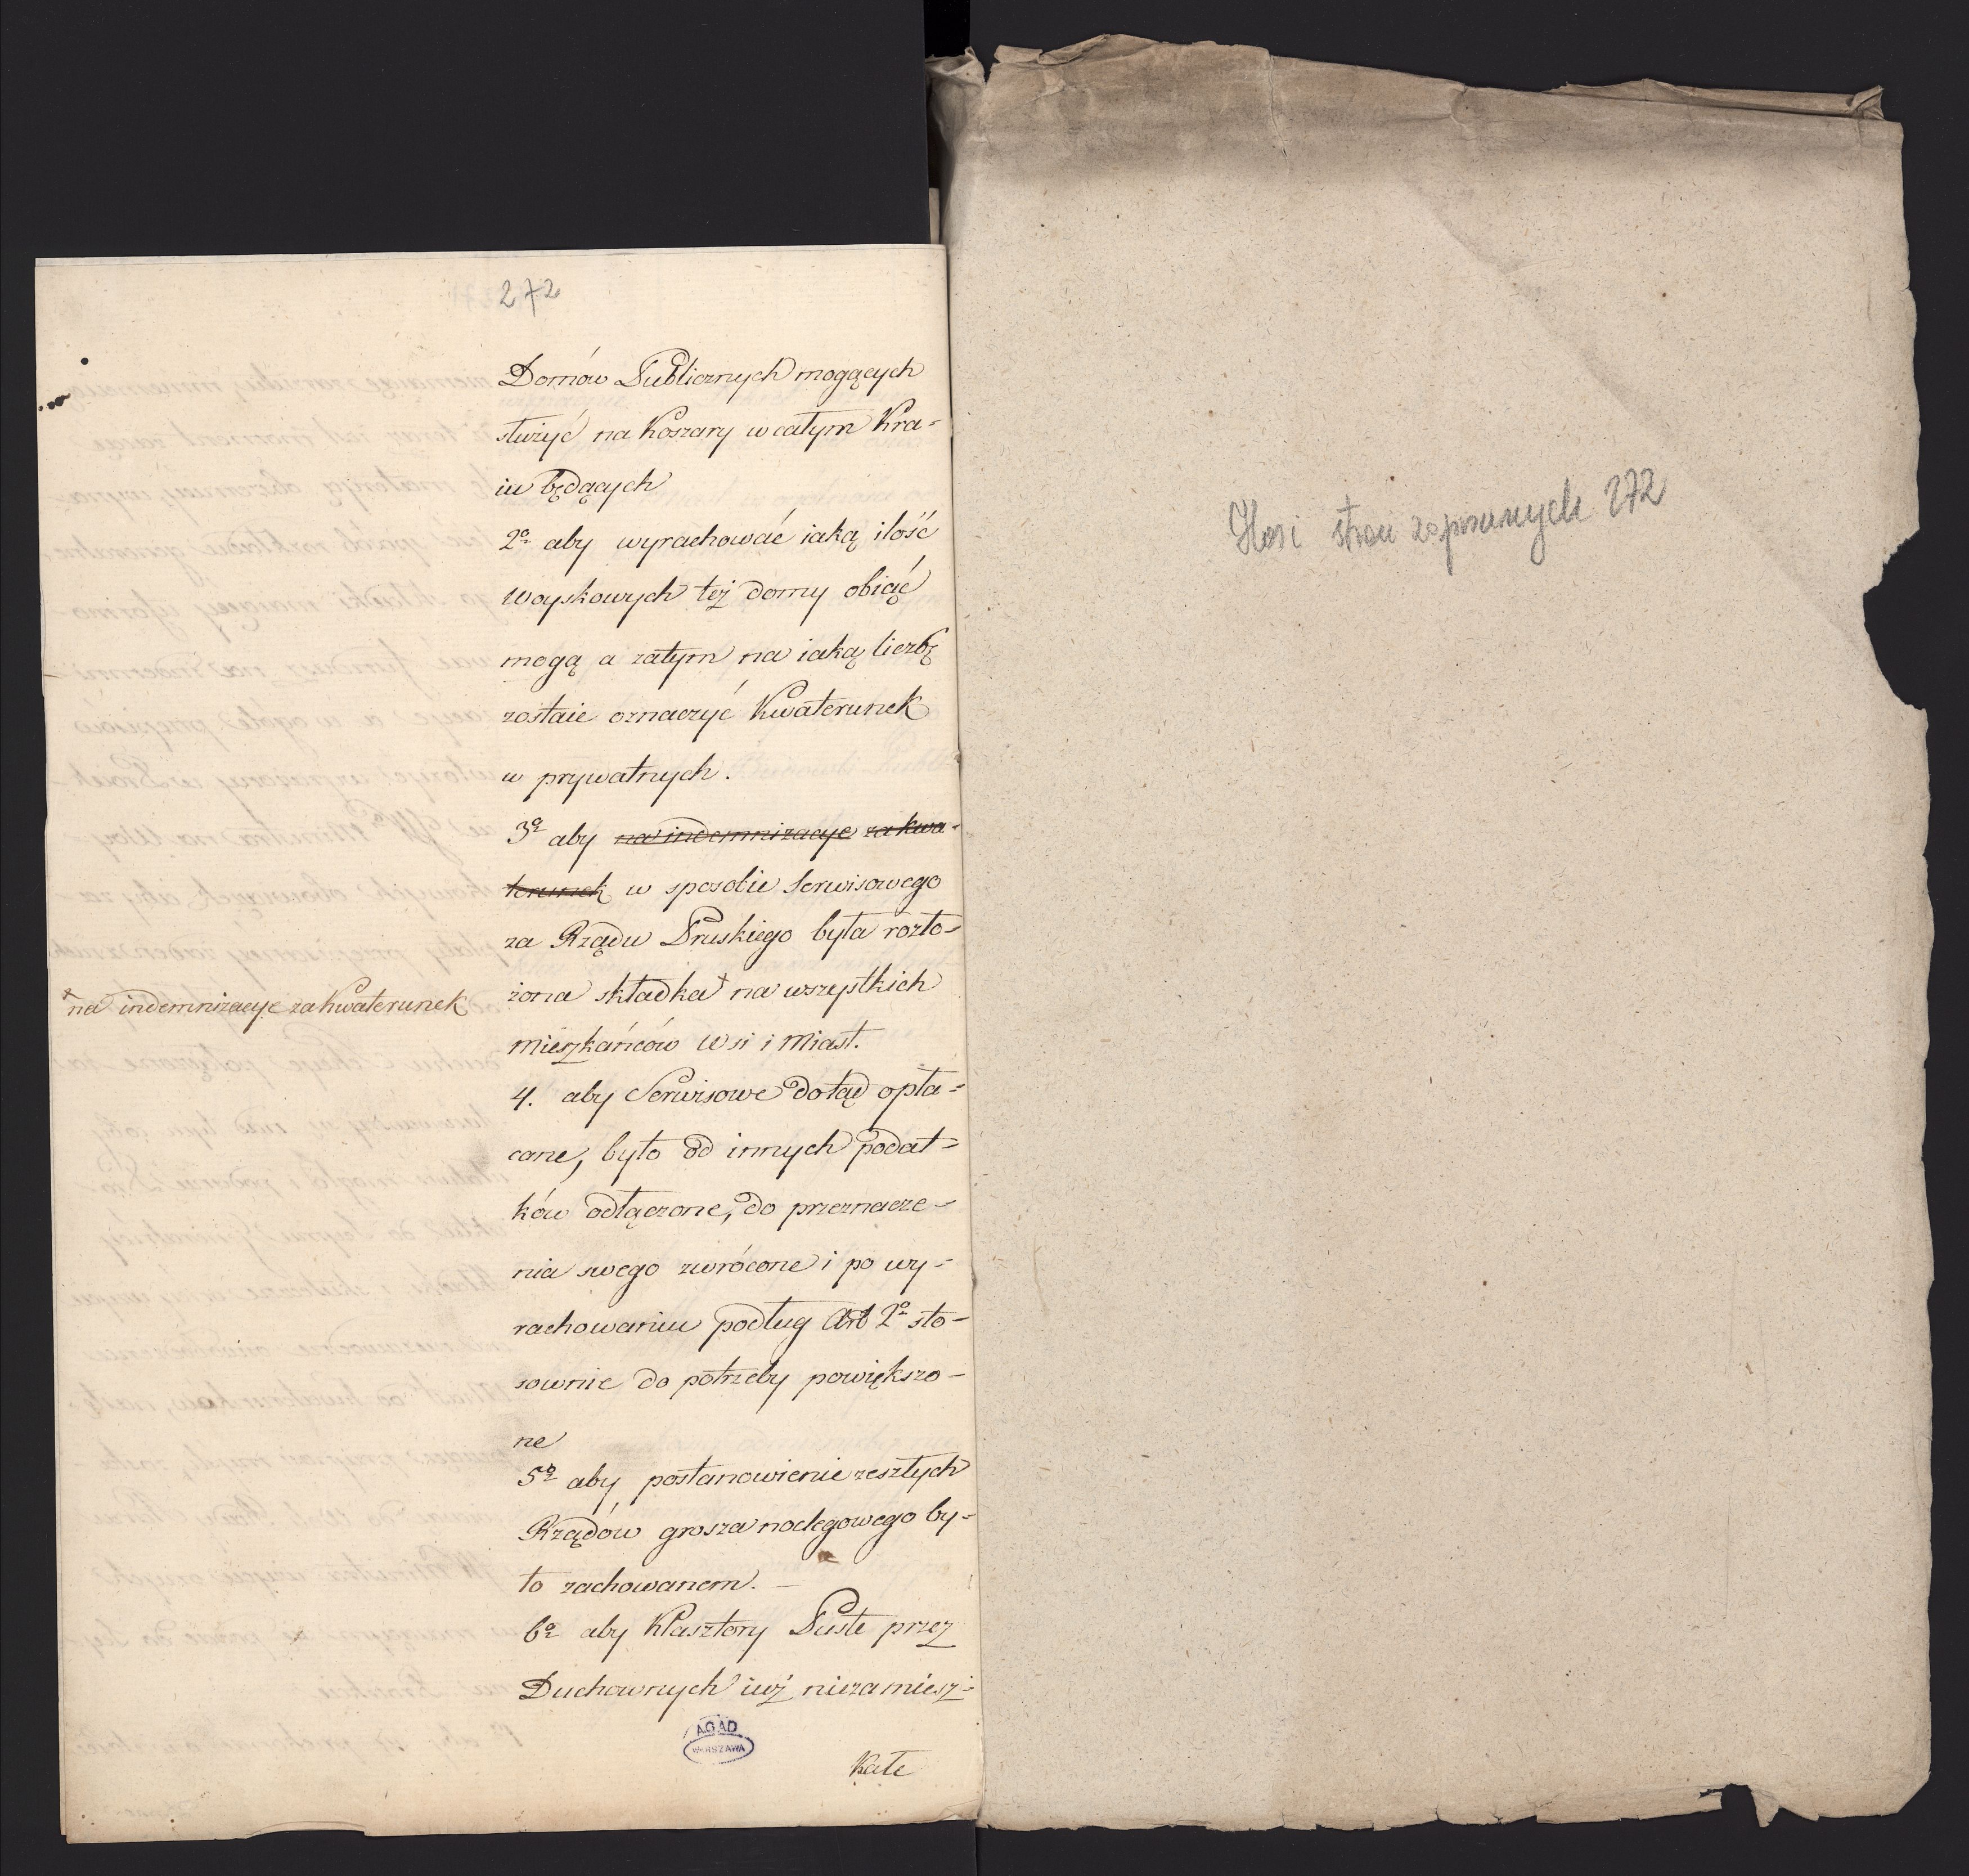 272
Domów Publicznych mogących
służyć na Koszary w całym Kra-
iu będących
2o aby wyrachować iaką ilość
Woyskowych też domy obiąć
mogą a zatym na iaką liczbę
zostaie oznaczyć Kwaterunek
w prywatnych.
3o aby na indemnizacye za kwa-
terunek w sposobie Serwisowego
za Rządu Pruskiego była rozło-
żona składka + na wszystkich
+ na indemnizacye za Kwaterunek
mieszkańców Wsi i Miast.
4. aby Serwisowe dotąd opła-
cane, było od innych podat-
ków odłączone, do przeznacze-
nia swego zwrócone i po wy-
rachowaniu podług Art 2o sto-
sownie do potrzeby powiększo-
ne
5o aby postanowienie zeszłych
Rządów grosza noclegowego by-
ło zachowanem.
6o aby Klasztory Puste przez
Duchownych iuż niezamiesz-
kałe
AGAD
WARSZAWA
Ilość stron zapisanych 272